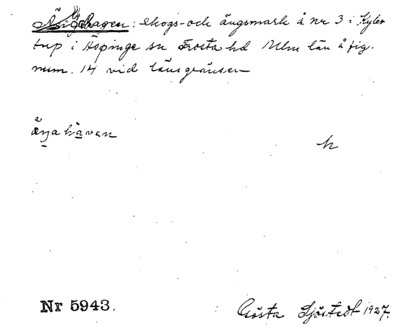 hagen: skogs- och ängsmark å nr 3 i
tup i Äspinge sn Frosta hd Mlm län å fig.
num. 14 vid länsgränsen
änahäven
Nr 5943.
Gösta Sjöstedt 1927.